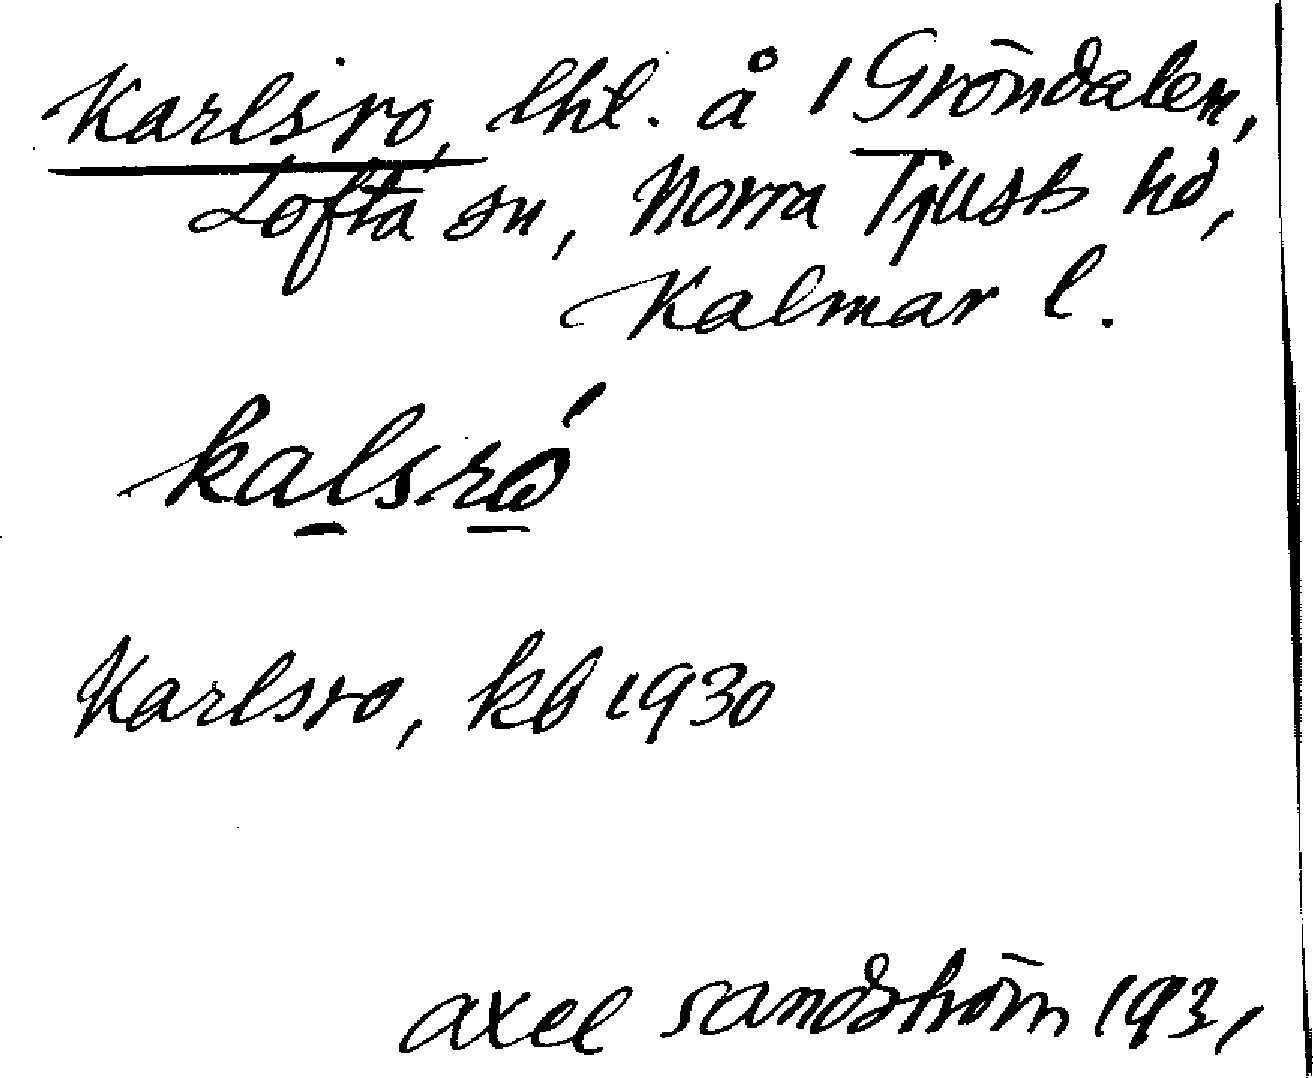 Karlsro, lht. å 1 Gröndalen,
Lofta sn, Norra Tjusts hd,
Kalmar l.
kalsró
Karlsro, kb 1930
Axel Sandström 1931